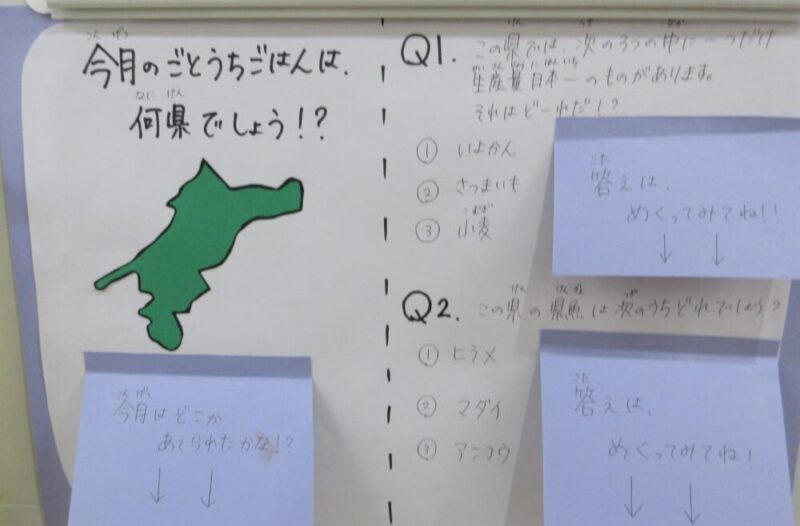 今月のごとうちごはんは、
何県でしょう!?
今月はどこか
あてられたかな!?
↓ ↓
Q1. この県では、次の3つの中に一つだけ
生産量日本一のものがあります。
それはどーれだ!?
① いよかん
② さつまいも
③ 小麦
答えは、
めくってみてね!!
↓ ↓
Q2. この県の県魚は次のうちどれでしょう?
① ヒラメ
② マダイ
③ アンコウ
答えは、
めくってみてね!
↓ ↓